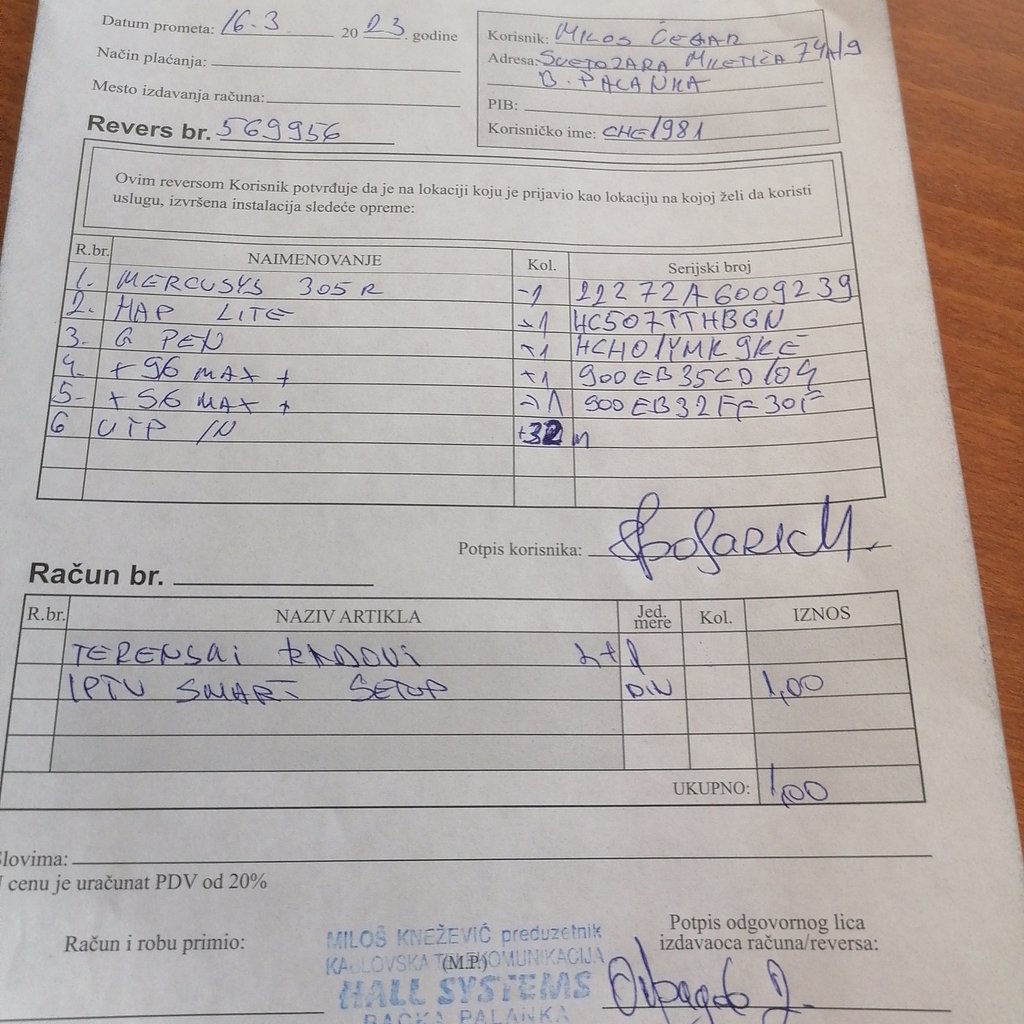 Datum prometa: 16.3 2023. godine
Način plaćanja:
Mesto izdavanja računa:
Revers br. 569956
Korisnik: MILOS ČEGAR
Adresa: SVETOZARA MILETIĆA 74A/9
B. PALANKA
PIB:
Korisničko ime: CHE1981
Ovim reversom Korisnik potvrđuje da je na lokaciji koju je prijavio kao lokaciju na kojoj želi da koristi
uslugu, izvršena instalacija sledeće opreme:
R.br. NAIMENOVANJE Kol. Serijski broj
1. MERCUSYS 305R -1 22272A6009239
2. HAP LITE +1 HC507TTHBGN
3. G PEN +1 HCH01YMK9KE
4. + 96 MAX + +1 900EB35CD104
5. + 96 MAX + +1 900EB32FF30F
6 UTP IN +32 m
Potpis korisnika:
Račun br.
R.br. NAZIV ARTIKLA Jed. mere Kol. IZNOS
TERENSKI RADOVI
IPTV SMART SETUP DIN 1,00
UKUPNO: 1,00
Slovima:
U cenu je uračunat PDV od 20%
Račun i robu primio:
MILOŠ KNEŽEVIĆ preduzetnik
KABLOVSKA TELEKOMUNIKACIJA
(M.P.)
HALL SYSTEMS
BAČKA PALANKA
Potpis odgovornog lica
izdavaoca računa/reversa: